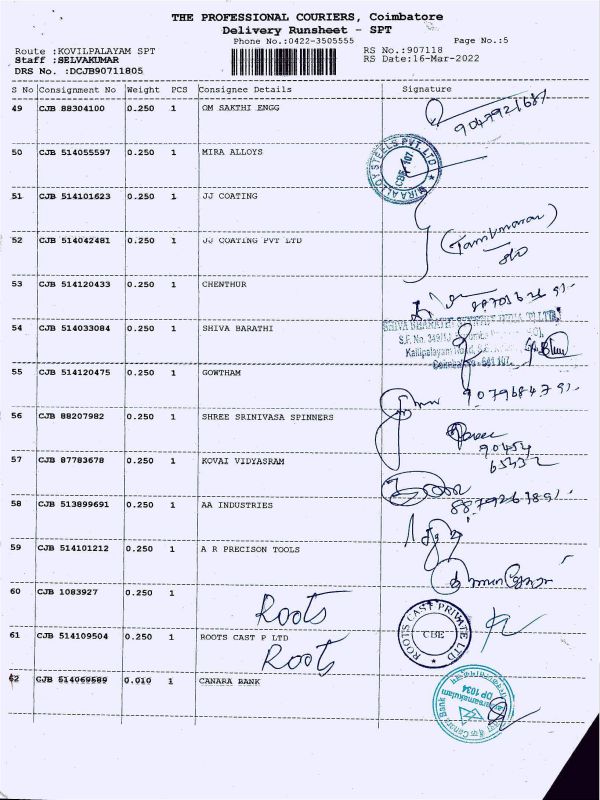 THE PROFESSIONAL COURIERS, Coimbatore
Delivery Runsheet - SPT
Phone No.:0422-3505555 Page No.:5
Route :KOVILPALAYAM SPT RS No.:907118
Staff :SELVAKUMAR RS Date:16-Mar-2022
DRS No. :DCJB90711805
S No Consignment No Weight PCS Consignee Details Signature
49 CJB 88304100 0.250 1 OM SAKTHI ENGG
50 CJB 514055597 0.250 1 MIRA ALLOYS
51 CJB 514101623 0.250 1 JJ COATING
52 CJB 514042481 0.250 1 JJ COATING PVT LTD
53 CJB 514120433 0.250 1 CHENTHUR
54 CJB 514033084 0.250 1 SHIVA BARATHI
Coimbatore - 641 107.
55 CJB 514120475 0.250 1 GOWTHAM
56 CJB 88207982 0.250 1 SHREE SRINIVASA SPINNERS
90454
57 CJB 87783678 0.250 1 KOVAI VIDYASRAM
58 CJB 513899691 0.250 1 AA INDUSTRIES
59 CJB 514101212 0.250 1 A R PRECISON TOOLS
60 CJB 1083927 0.250 1 Roots
ROOTS CAST PRIVATE LTD
CBE
61 CJB 514109504 0.250 1 ROOTS CAST P LTD
Roots
62 CJB 514069589 0.010 1 CANARA BANK
Canara Bank
DP 1034